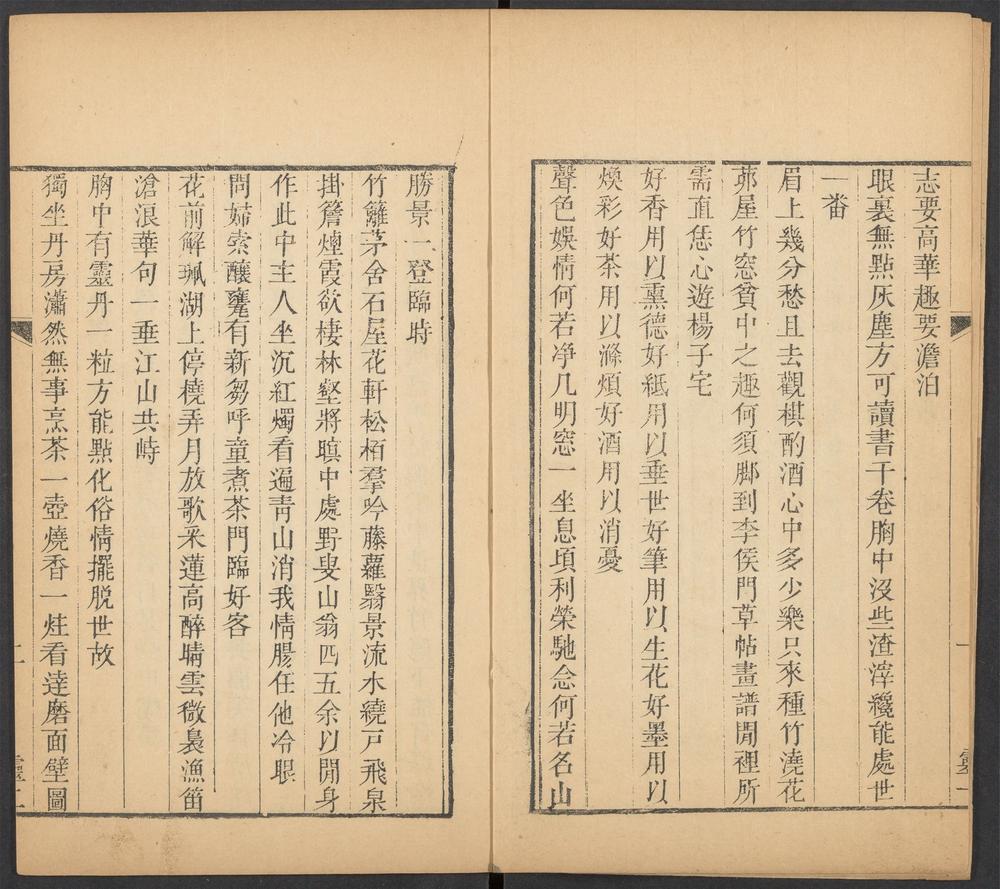 志要高華趣要澹泊
眼裏無點灰塵方可讀書千卷胸中沒些渣滓纔能處世
一番
眉上幾分愁且去觀棋酌酒心中多少樂只來種竹澆花
茆屋竹窓貧中之趣何須脚到李侯門草帖畫譜閒裡所
需直恁心遊楊子宅
好香用以熏德好紙用以垂世好筆用以生花好墨用以
煥彩好茶用以滌煩好酒用以消憂
聲色娛情何若凈几明窓一坐息頃利榮馳念何若名山
一
靈一
勝景一登臨時
竹籬茅舍石屋花軒松栢羣吟藤蘿翳景流水繞戸飛泉
掛簷煙霞欲棲林壑將瞑中處野叟山翁四五余以閒身
作此中主人坐沉紅燭看遍靑山消我情腸任他冷眼
問婦索釀甕有新芻呼童煮茶門臨好客
花前解珮湖上停橈弄月放歌采蓮高醉晴雲微裊漁笛
滄浪華句一垂江山共峙
胸中有靈丹一粒方能點化俗情擺脱世故
獨坐丹房瀟然無事烹茶一壺燒香一炷看達磨面壁圖
二
靈二